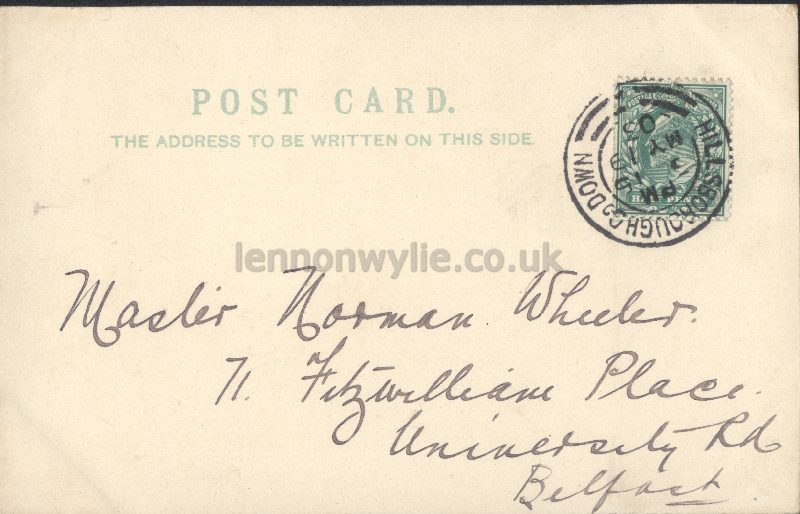 POST CARD.
THE ADDRESS TO BE WRITTEN ON THIS SIDE.
HILLSBOROUGH CO DOWN
PM
MY
03
HALF PENNY
lennonwylie.co.uk
Master Norman Wheeler.
71. Fitzwilliam Place.
University Rd
Belfast.